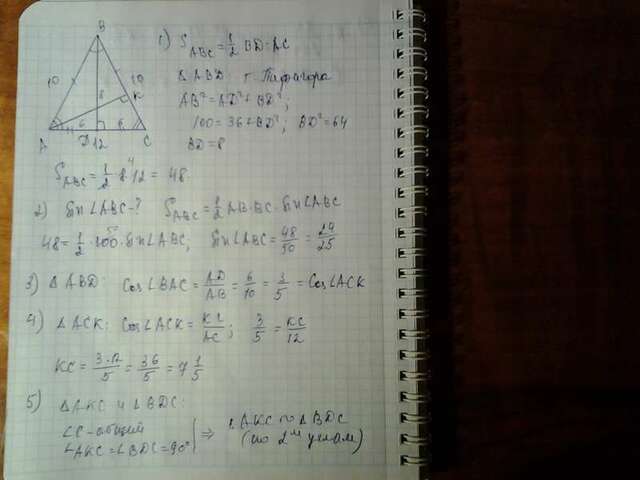 B
10
10
8
K
6
6
A
D
12
C
1) S_ABC = 1/2 BD·AC
Δ ABD: т. Пифагора
AB² = AD² + BD²;
100 = 36 + BD²; BD² = 64
BD = 8
S_ABC = 1/2 · 8 · 12 = 48.
4
2) Sin∠ABC - ? S_ABC = 1/2 AB·BC·Sin∠ABC
48 = 1/2 · 100 · Sin∠ABC; Sin∠ABC = 48/50 = 24/25
50
3) Δ ABD: Cos∠BAC = AD/AB = 6/10 = 3/5 = Cos∠ACK
4) Δ ACK: Cos∠ACK = KC/AC; 3/5 = KC/12
KC = 3·12/5 = 36/5 = 7 1/5
5) Δ AKC и ΔBDC:
∠C - общий
∠AKC = ∠BDC = 90° | ⇒ ΔAKC ~ ΔBDC
(по 2ᵐ углам)